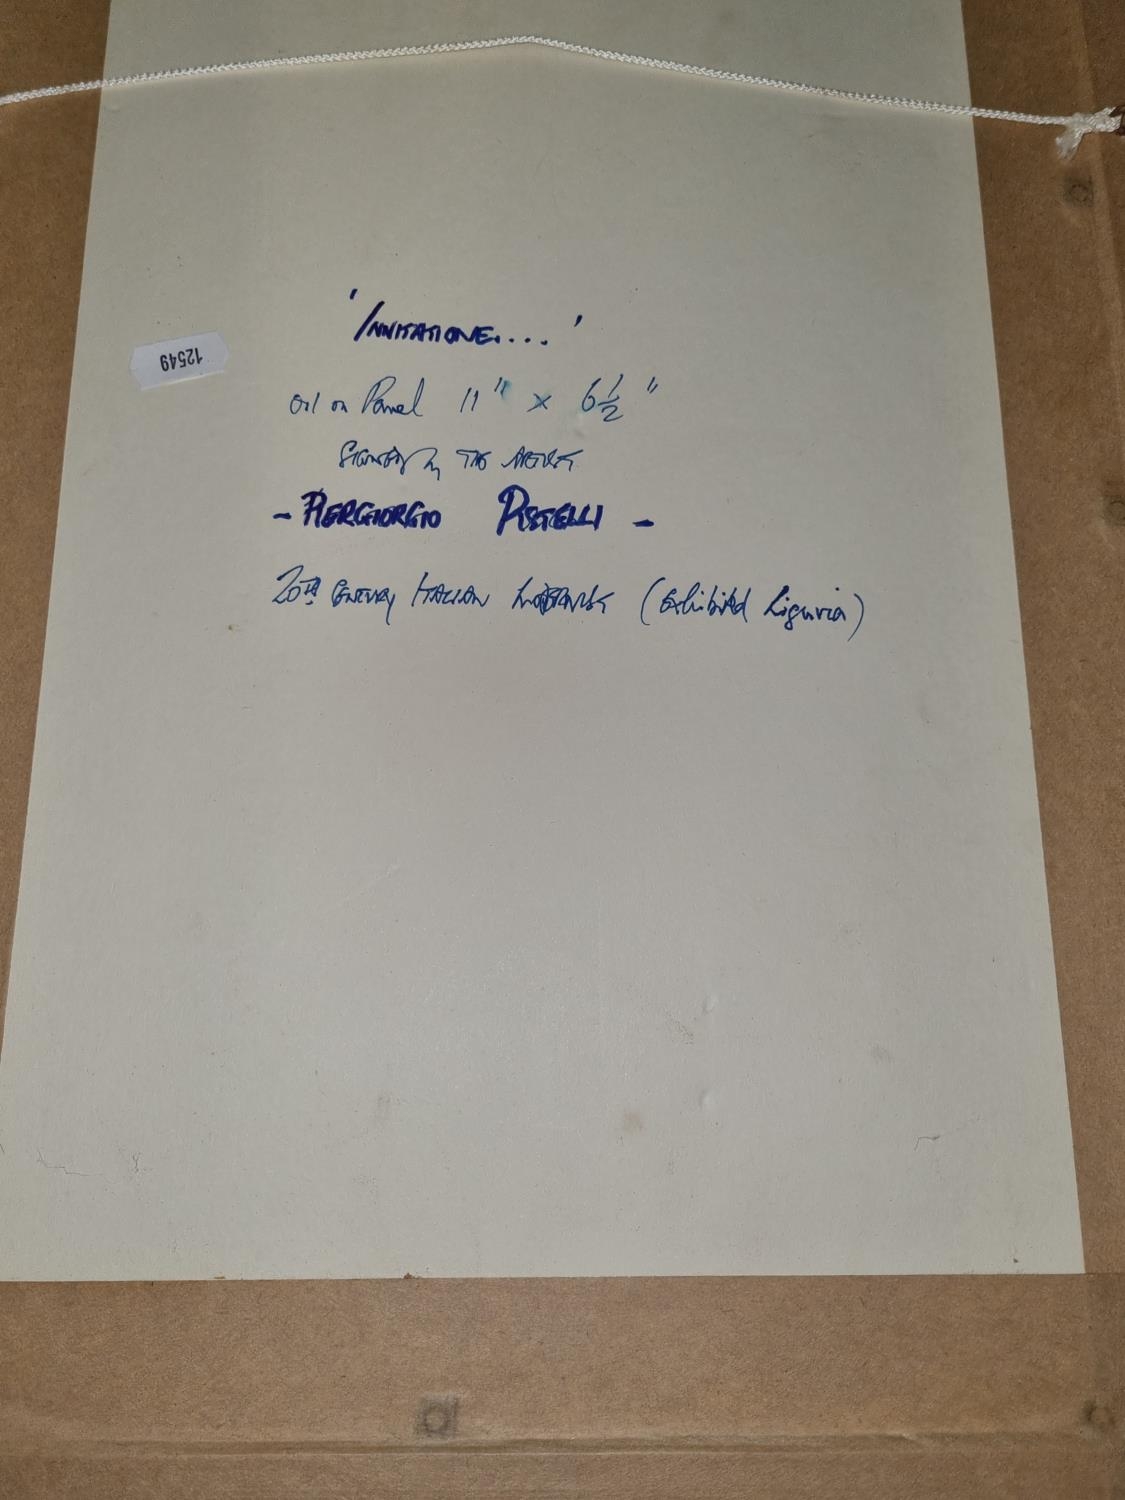 'INVITATIONE....'
12549
oil on Panel 11" x 6½"
SIGNED by THE ARTIST
- PIERGIORGIO PISTELLI -
20TH CENTURY ITALIAN (Exhibited Liguria)